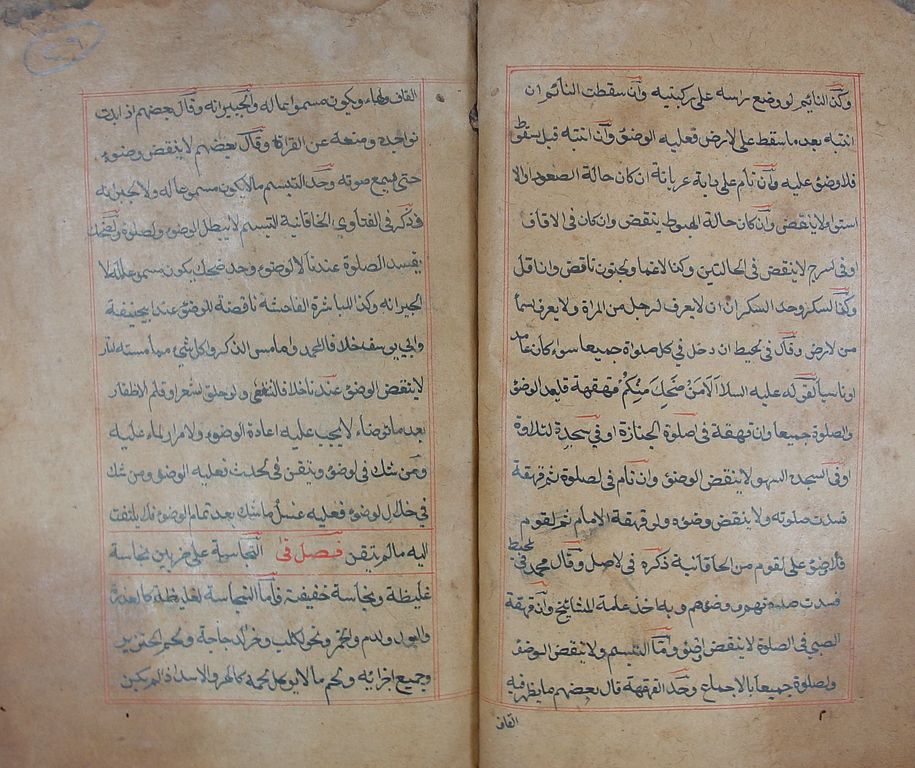 وكذا النائم لو وضع راسه على ركبتيه وان سقطت النائم ان
انتبه بعد ما سقط على الارض فعليه الوضوء وان انتبه قبل سقوط
فلا وضوء عليه وان نام على دابة عريانة ان كان حالة الصعود او الا
استواء لا ينقض وان كان حالة الهبوط ينقض وان كان في الاقاف
او في السرج لا ينقض في الحالتين وكذا الاغما والجنون ناقض وان قل
وكذا السكر وحد السكران ان لا يعرف الرجل من المراة ولا يعرف السما
من الارض وقال في المحيط ان دخل في كل صلوة جميعا سواء كان عامد
او ناسيا لقوله عليه السلام الا من ضحك منكم قهقهة فليعد الوضوء
والصلوة جميعا وان قهقهة في صلوة الجنازة او في سجدة التلاوة
او في السجدة السهو لا ينقض الوضوء وان نام في الصلوة ثم قهقهة
فسدت صلوته ولا ينقض وضوءه ولو قهقهة الامام ثم القوم
فلا وضوء على القوم من الخاقانية ذكره في الاصل وقال محمد في المحيط
فسدت صلوتهم ووضوءهم وبه اخذ عامة المشائخ وان قهقهة
الصبي في الصلوة لا ينقض الوضوء واما التبسم ولا ينقض الوضوء
والصلوة جميعا بالاجماع وحد القهقهة قال بعضهم ما يظهر فيه
القاف
القاف والهاء ويكون مسموعا له والجيرانه وقال بعضهم اذا بدت
نواجده ومنعه عن القراة وقال بعضهم لا ينقض وضوءه
حتى يسمع صوته وحد التبسم ما لا يكون مسموعا له ولا لجيرانه
فذكر في الفتاوي الخاقانية التبسم لا يبطل الوضوء والصلوة والضحك
يفسد الصلوة عندنا لا الوضوء وحد ضحك يكون مسموعا له لا
لجيرانه وكذا المباشرة الفاحشة ناقضة للوضوء عند ابي حنيفة
وابي يوسف خلافا لمحمد واما مس الذكر وكل شيء مما مسته النار
لا ينقض الوضوء عندنا خلافا للشافعي ولو حلق الشعر او قلم الاظفار
بعد ما توضاء لا يجب عليه اعادة الوضوء ولا امرار الماء عليه
ومن شك في وضوء وتيقن في الحدث فعليه الوضوء ومن شك
في خلال الوضوء فعليه غسل ما شك بعد تمام الوضوء فلا يلتفت
اليه ما لم يتيقن فصل في النجاسة على ضربين نجاسة
غليظة ونجاسة خفيفة فاما النجاسة الغليظة كالعذرة
والبول والدم والخمر ونحو الكلب وخرا الدجاجة ولحم الخنزير
وجميع اجزائه ولحم ما لا يوكل لحمه كالهر والاسد اذا لم يكن